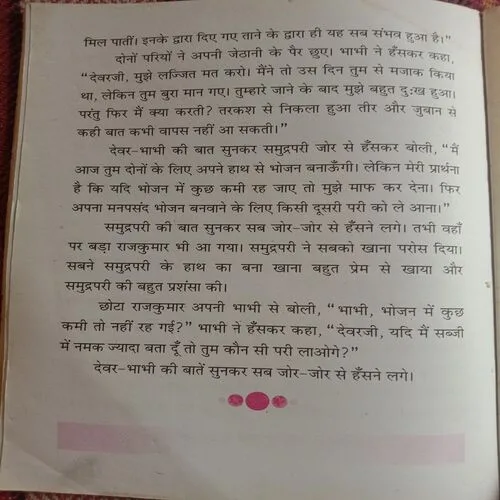 मिल पातीं। इनके द्वारा दिए गए ताने के द्वारा ही यह सब संभव हुआ है।"
दोनों परियों ने अपनी जेठानी के पैर छुए। भाभी ने हँसकर कहा,
"देवरजी, मुझे लज्जित मत करो। मैंने तो उस दिन तुम से मजाक किया
था, लेकिन तुम बुरा मान गए। तुम्हारे जाने के बाद मुझे बहुत दुःख हुआ।
परंतु फिर मैं क्या करती? तरकश से निकला हुआ तीर और जुबान से
कही बात कभी वापस नहीं आ सकती।"
देवर-भाभी की बात सुनकर समुद्रपरी जोर से हँसकर बोली, "मैं
आज तुम दोनों के लिए अपने हाथ से भोजन बनाऊँगी। लेकिन मेरी प्रार्थना
है कि यदि भोजन में कुछ कमी रह जाए तो मुझे माफ कर देना। फिर
अपना मनपसंद भोजन बनवाने के लिए किसी दूसरी परी को ले आना।"
समुद्रपरी की बात सुनकर सब जोर-जोर से हँसने लगे। तभी वहाँ
पर बड़ा राजकुमार भी आ गया। समुद्रपरी ने सबको खाना परोस दिया।
सबने समुद्रपरी के हाथ का बना खाना बहुत प्रेम से खाया और
समुद्रपरी की बहुत प्रशंसा की।
छोटा राजकुमार अपनी भाभी से बोली, "भाभी, भोजन में कुछ
कमी तो नहीं रह गई?" भाभी ने हँसकर कहा, "देवरजी, यदि मैं सब्जी
में नमक ज्यादा बता दूँ तो तुम कौन सी परी लाओगे?"
देवर-भाभी की बातें सुनकर सब जोर-जोर से हँसने लगे।